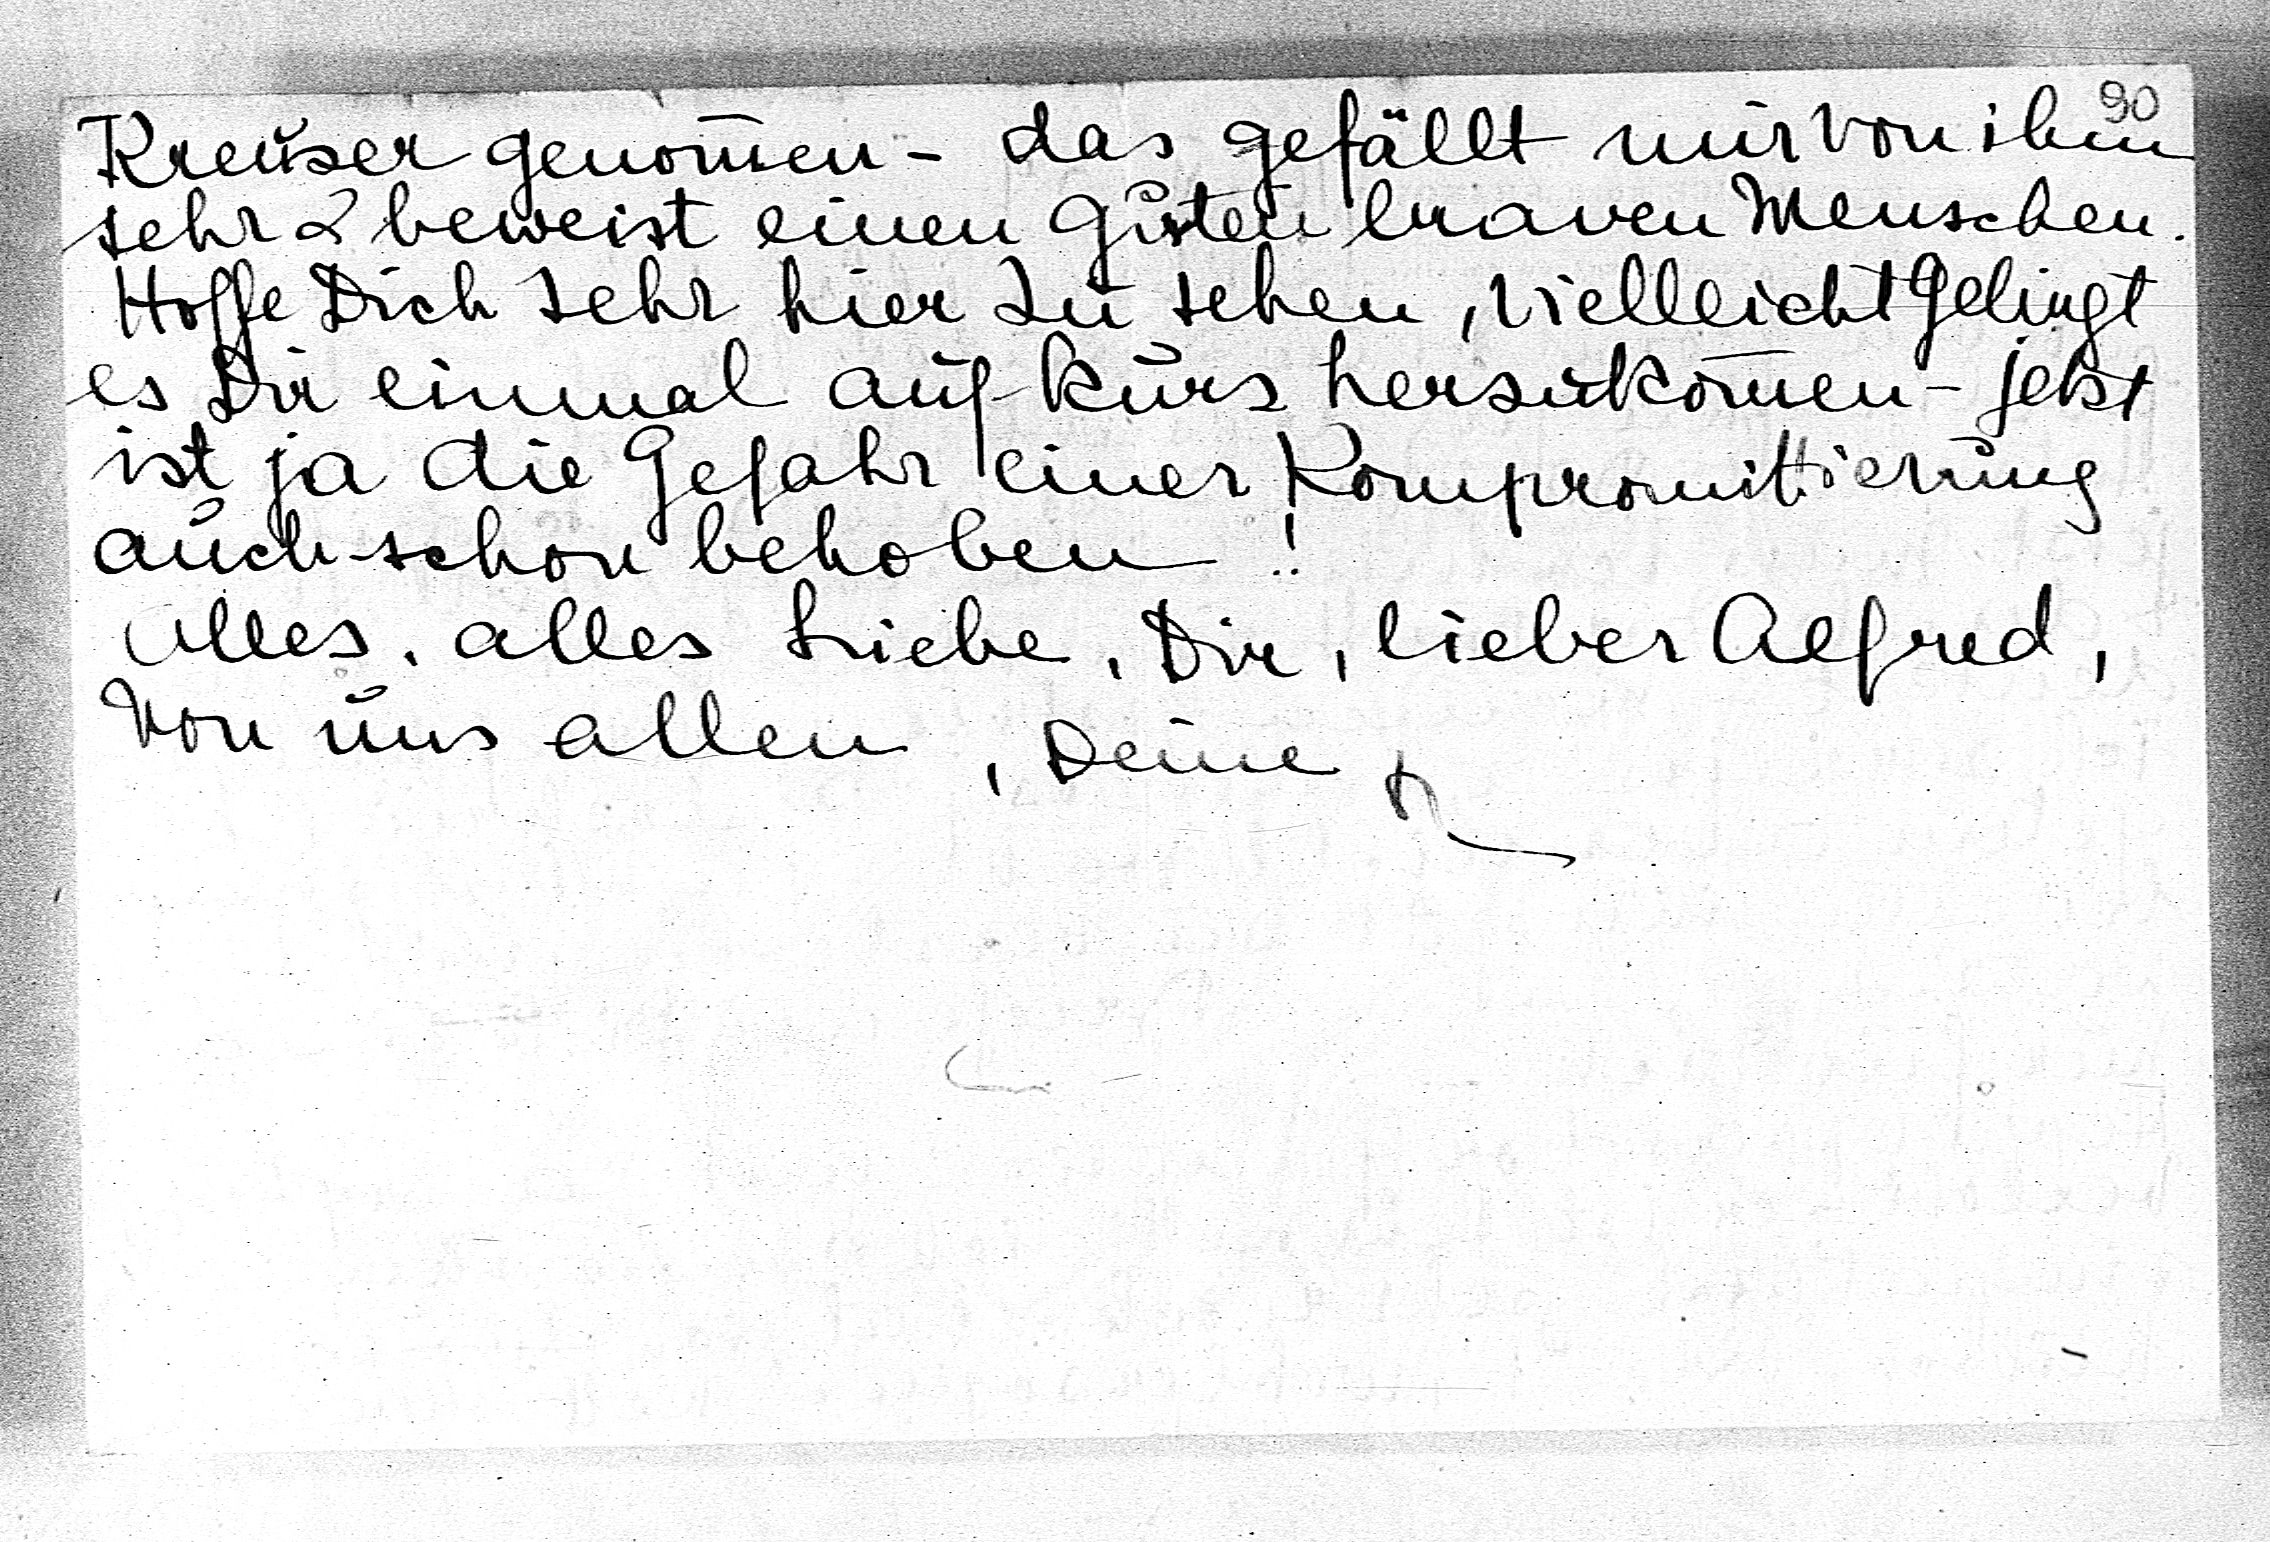 90
Kreuzer genom̄en - das gefällt mir von ihm
sehr & beweist einen guten braven Menschen.
Hoffe Dich sehr hier zu sehen, vielleicht gelingt
es Dir einmal auf kurz herzukom̄en - jetzt
ist ja die Gefahr einer Kompromittierung
auch schon behoben!
Alles, alles Liebe, Dir, lieber Alfred,
von uns allen, Deine